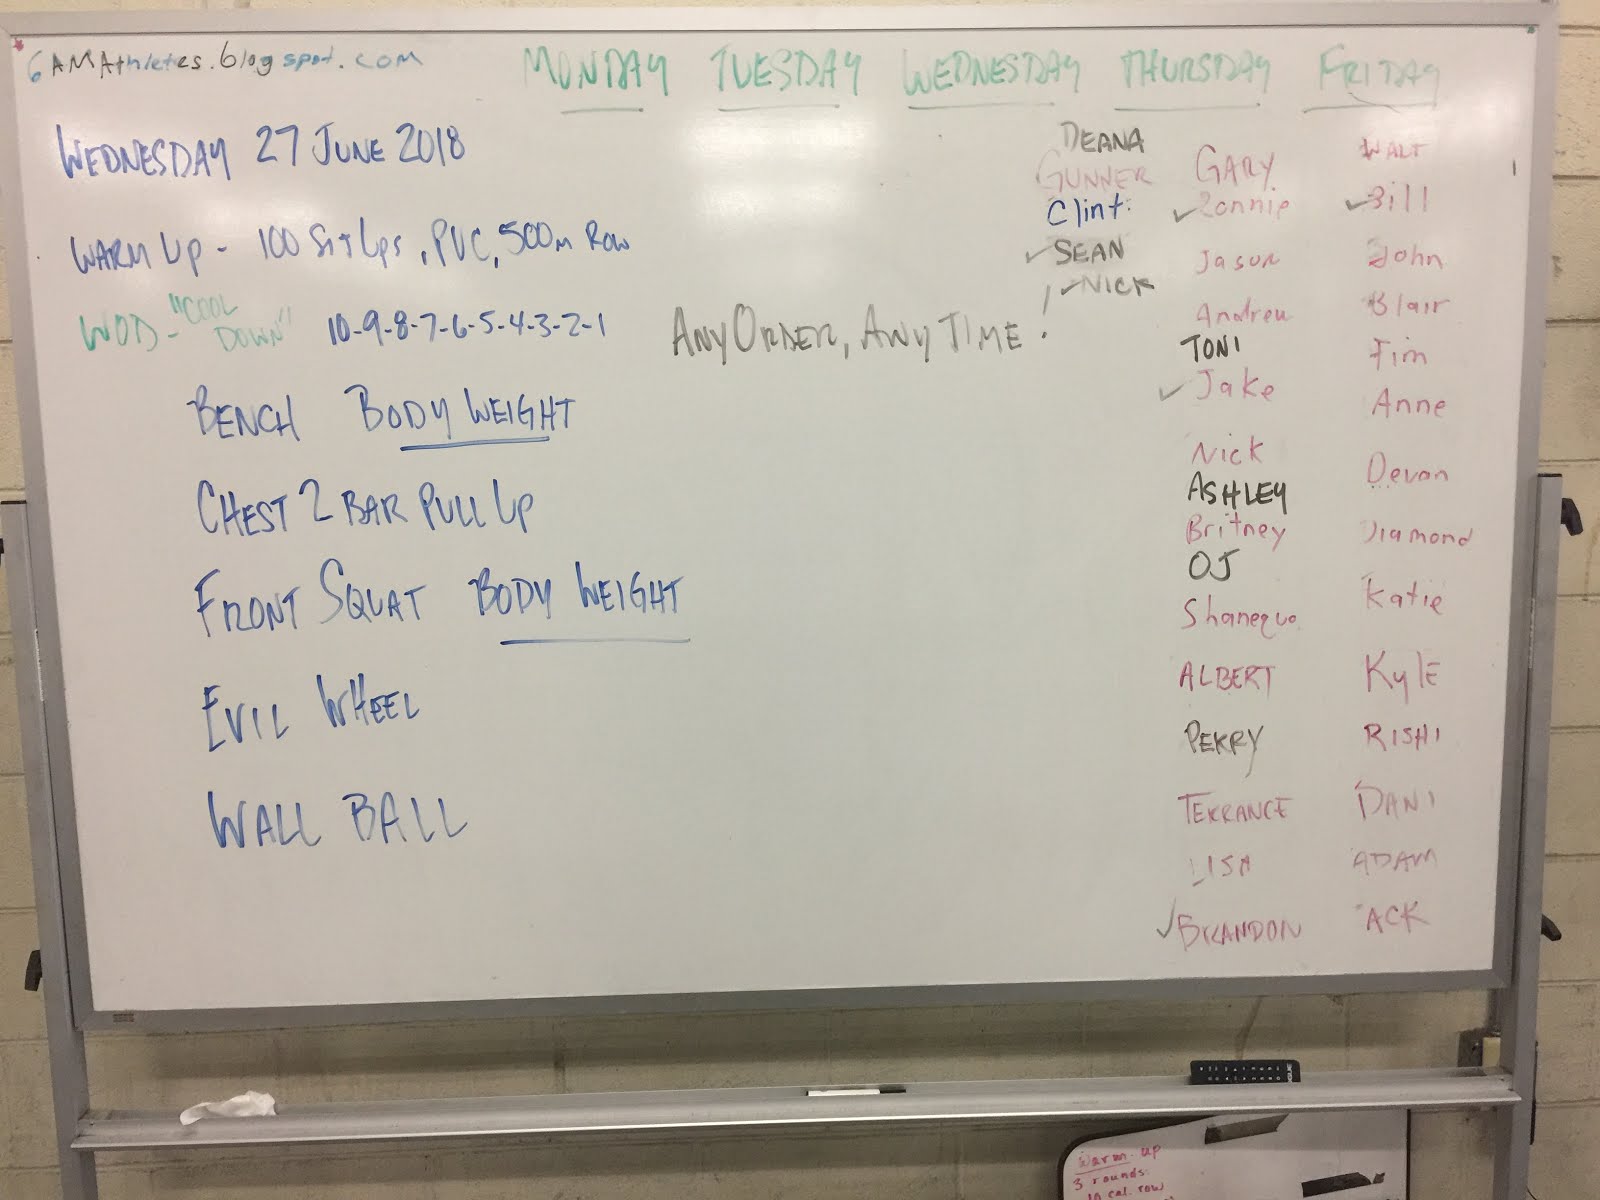 6AMAthletes.blogspot.com
MONDAY TUESDAY WEDNESDAY THURSDAY FRIDAY
WEDNESDAY 27 JUNE 2018
WARM UP - 100 Sit Ups, PVC, 500m Row
WOD - "COOL DOWN" 10-9-8-7-6-5-4-3-2-1 ANY ORDER, ANY TIME!
BENCH BODY WEIGHT
CHEST 2 BAR PULL UP
FRONT SQUAT BODY WEIGHT
EVIL WHEEL
WALL BALL
DEANA
GUNNER
Clint
✓ SEAN
✓ NICK
GARY
✓ Ronnie
Jason
Andrew
TONI
✓ Jake
Nick
ASHLEY
Britney
OJ
Shanequa
ALBERT
PERRY
TERRANCE
LISA
✓ BRANDON
WALT
✓ Bill
John
Blair
Tim
Anne
Devon
Diamond
Katie
KylE
RISHI
DANI
ADAM
ACK
Warm up
3 rounds:
10 cal. row